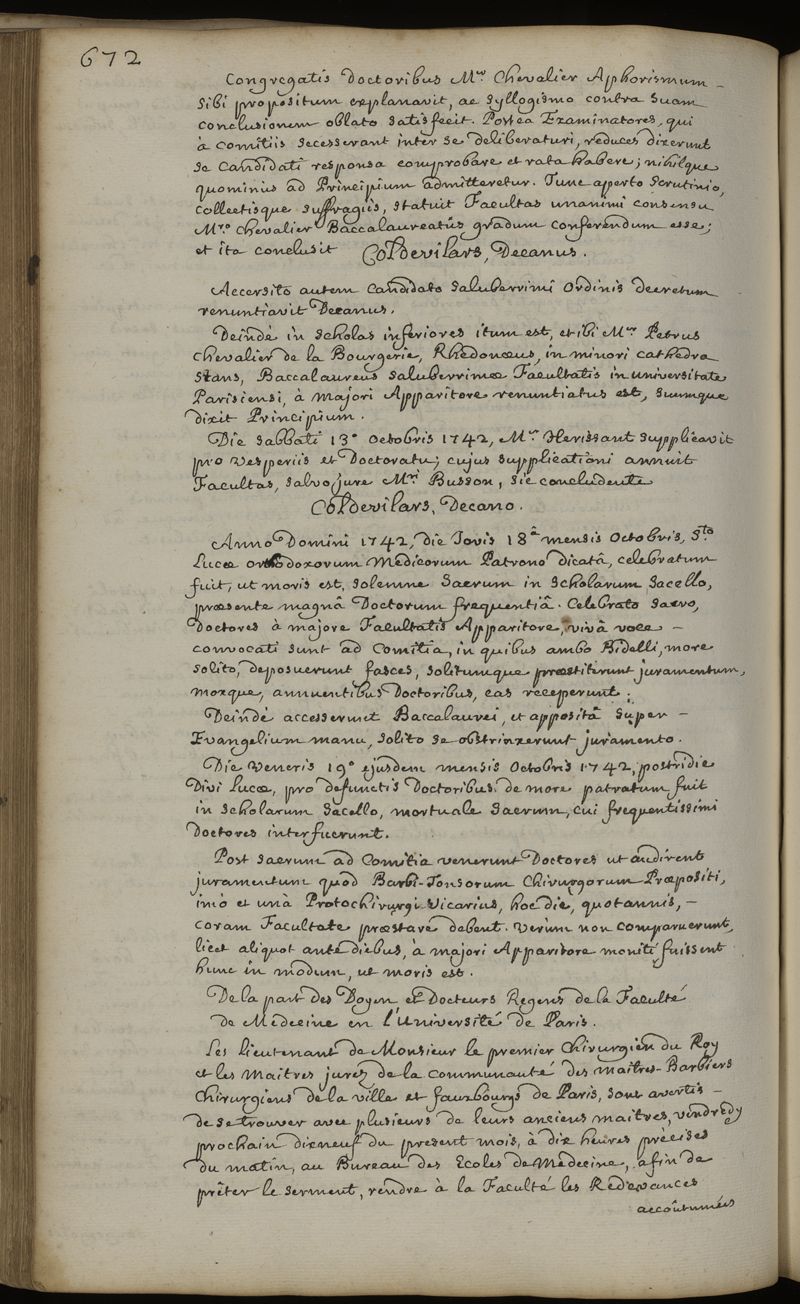 672
Congregatis Doctoribus M.er Chevalier Aphorismum
sibi propositum explanavit, ac syllogismo contra suam
conclusionem oblato satisfecit. Postea Examinatores, qui
à comitiis secesserant inter se deliberaturi, reduces dixerunt
se Candidati responsa comprobare et rata habere; nihilque
quominus ad Principium admitteretur. Tunc aperto Scrutinio,
collectisque suffragiis, statuit Facultas unanimi consensu
M.ro Chevalier Baccalaureatûs gradum conferendum esse;
et ita conclusit Col devilars, Decanus.
Accersito autem Candidato saluberrimi Ordinis decretum
renuntiavit Decanus.
Deindè in scholas inferiores itum est, et ibi M.er Petrus
Chevalier de la Bourgerie, Rhedonæus, in minori cathedra
stans, Baccalaureus saluberrimæ Facultatis in universitate
Parisiensi, à majori Apparitore renuntiatus est, suumque
dixit Principium.
Die sabbati 13.o Octobris 1742, M.er Herissant supplicavit
pro vesperiis et Doctoratu; cujus supplicationi annuit
Facultas, salvo jure M.ri Busson, sic concludente
Col devilars, Decano.
Anno Domini 1742, die Jovis 18.â mensis Octobris, S.to
Lucæ orthodoxorum Medicorum Patrono dicatâ, celebratum
fuit, ut moris est, solemne sacrum in scholarum sacello,
præsente magnâ Doctorum frequentiâ. Celebrato sacro,
Doctores à majore Facultatis Apparitore, vivâ voce –
convocati sunt ad Comitia, in quibus ambo Bidelli, more
solito, deposuerunt fasces, solitumque præstiterunt juramentum,
moxque, annuentibus Doctoribus, eas receperunt.
Deindè accesserunt Baccalaurei, et appositâ super –
Evangelium manu, solito se obstrinxerunt juramento.
Die Veneris 19.o ejusdem mensis Octobris 1742, postridie
Divi Lucæ, pro defunctis Doctoribus de more patratum fuit
in scholarum sacello, mortuale sacrum, cui frequentissimi
Doctores interfuerunt.
Post sacrum ad Comitia venerunt Doctores ut audirent
juramentum quod Barbi-Tonsorum Chirurgorum Præpositi,
imò et unà Protochirurgi Vicarius, hoc die, quotannis, –
coram Facultate præstare debent. Verùm non comparuerunt,
licèt aliquot antè diebus, à majori Apparitore moniti fuissent
hunc in modum, ut moris est.
De la part des Doyen et Docteurs Regens de la Faculté
de Médecine en l'Université de Paris.
Les Lieutenant de Monsieur le premier Chirurgien du Roy
et les Maitres jurez de la communauté des maitres-Barbiers
Chirurgiens de la ville et fauxbourgs de Paris, sont avertis –
de se trouver avec plusieurs de leurs anciens maitres, vendredy
prochain dixneuf du present mois, à dix heures précises
du matin, au Bureau des Ecoles de Médecine, afin de
prêter le serment, rendre à la Faculté les Redevances
accoûtumées